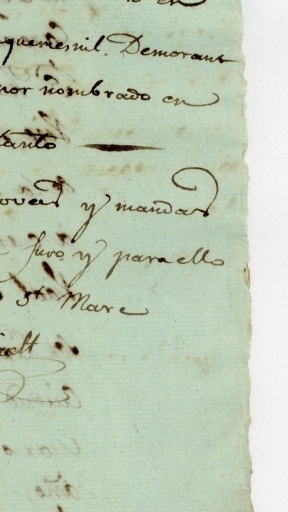 en
quemesnil. Demorant
nor nombrado en
tanto
y mandas
Juro y para ello
St Marc